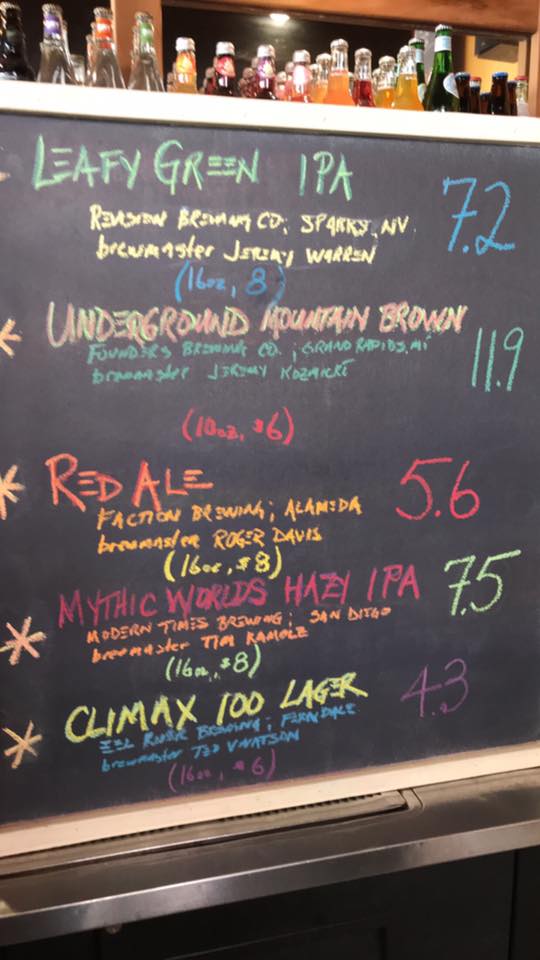 LEAFY GREEN IPA 7.2
REVISION BREWING CO; SPARKS, NV.
brewmaster JEREMY WARREN
(16oz, 8)
UNDERGROUND MOUNTAIN BROWN 11.9
FOUNDERS BREWING CO.; GRAND RAPIDS, MI
brewmaster JEREMY KOZMICKI
(10oz, $6)
RED ALE 5.6
FACTION BREWING; ALAMEDA
brewmaster ROGER DAVIS
(16oz, $8)
MYTHIC WORLDS HAZY IPA 7.5
MODERN TIMES BREWING; SAN DIEGO
brewmaster TIM
(16oz, $8)
CLIMAX 100 LAGER 4.3
EEL RIVER BREWING; FERNDALE
brewmaster TED VIVATSON
(16oz, $6)